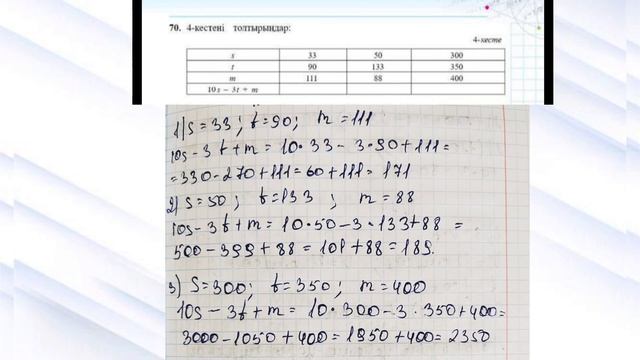 70. 4-кестені толтырыңдар:
4-кесте
s 33 50 300
t 90 133 350
m 111 88 400
10s – 3t + m
1) S = 33 ; t = 90 ; m = 111
10s - 3t + m = 10·33 - 3·90 + 111 =
= 330 - 270 + 111 = 60 + 111 = 171
2) S = 50 ; t = 133 ; m = 88
10s - 3t + m = 10·50 - 3·133 + 88 =
500 - 399 + 88 = 101 + 88 = 189.
3) S = 300 ; t = 350 ; m = 400
10s - 3t + m = 10·300 - 3·350 + 400 =
3000 - 1050 + 400 = 1950 + 400 = 2350